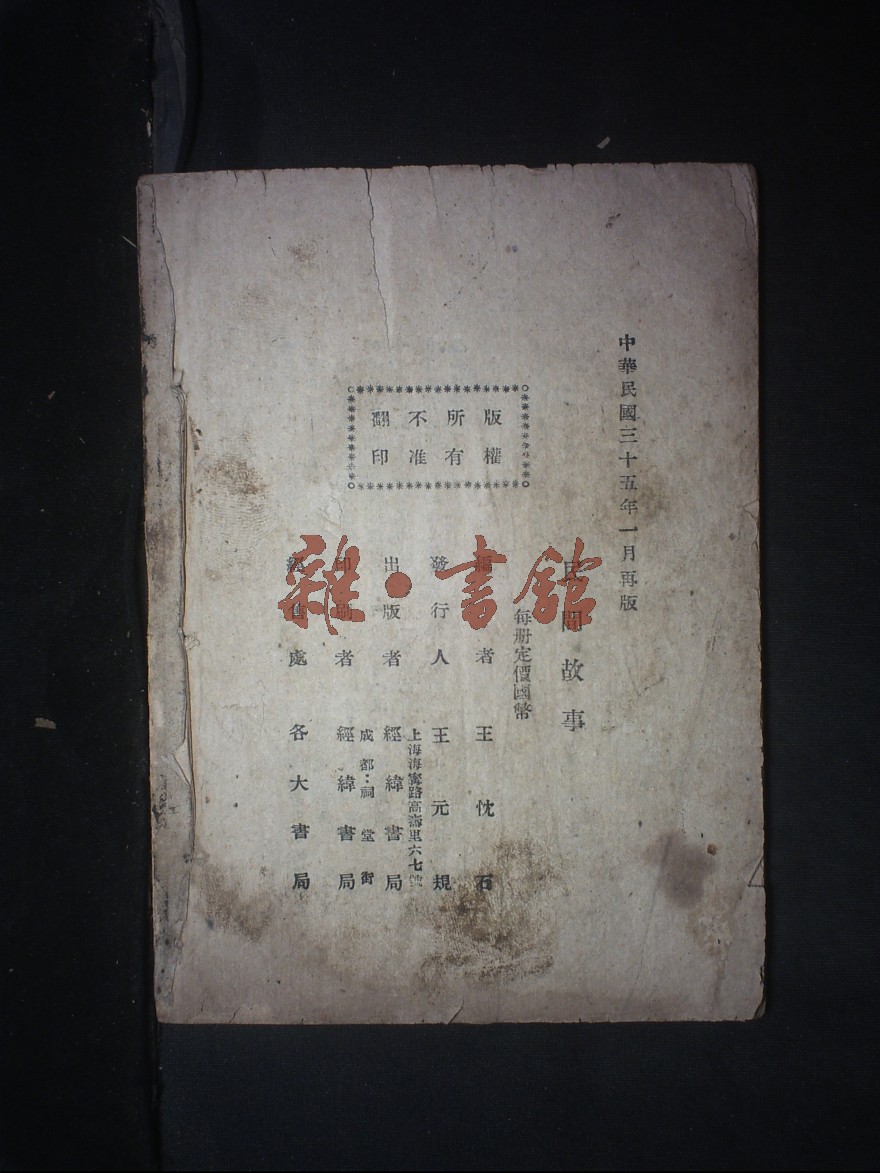 中華民國三十五年一月再版
版權
所有
不准
翻印
民間故事
每册定價國幣
編者 王忱石
發行人 王元規
上海海寗路高壽里六七號
出版者 經緯書局
成都:祠堂街
印刷者 經緯書局
經售處 各大書局
雜·書館